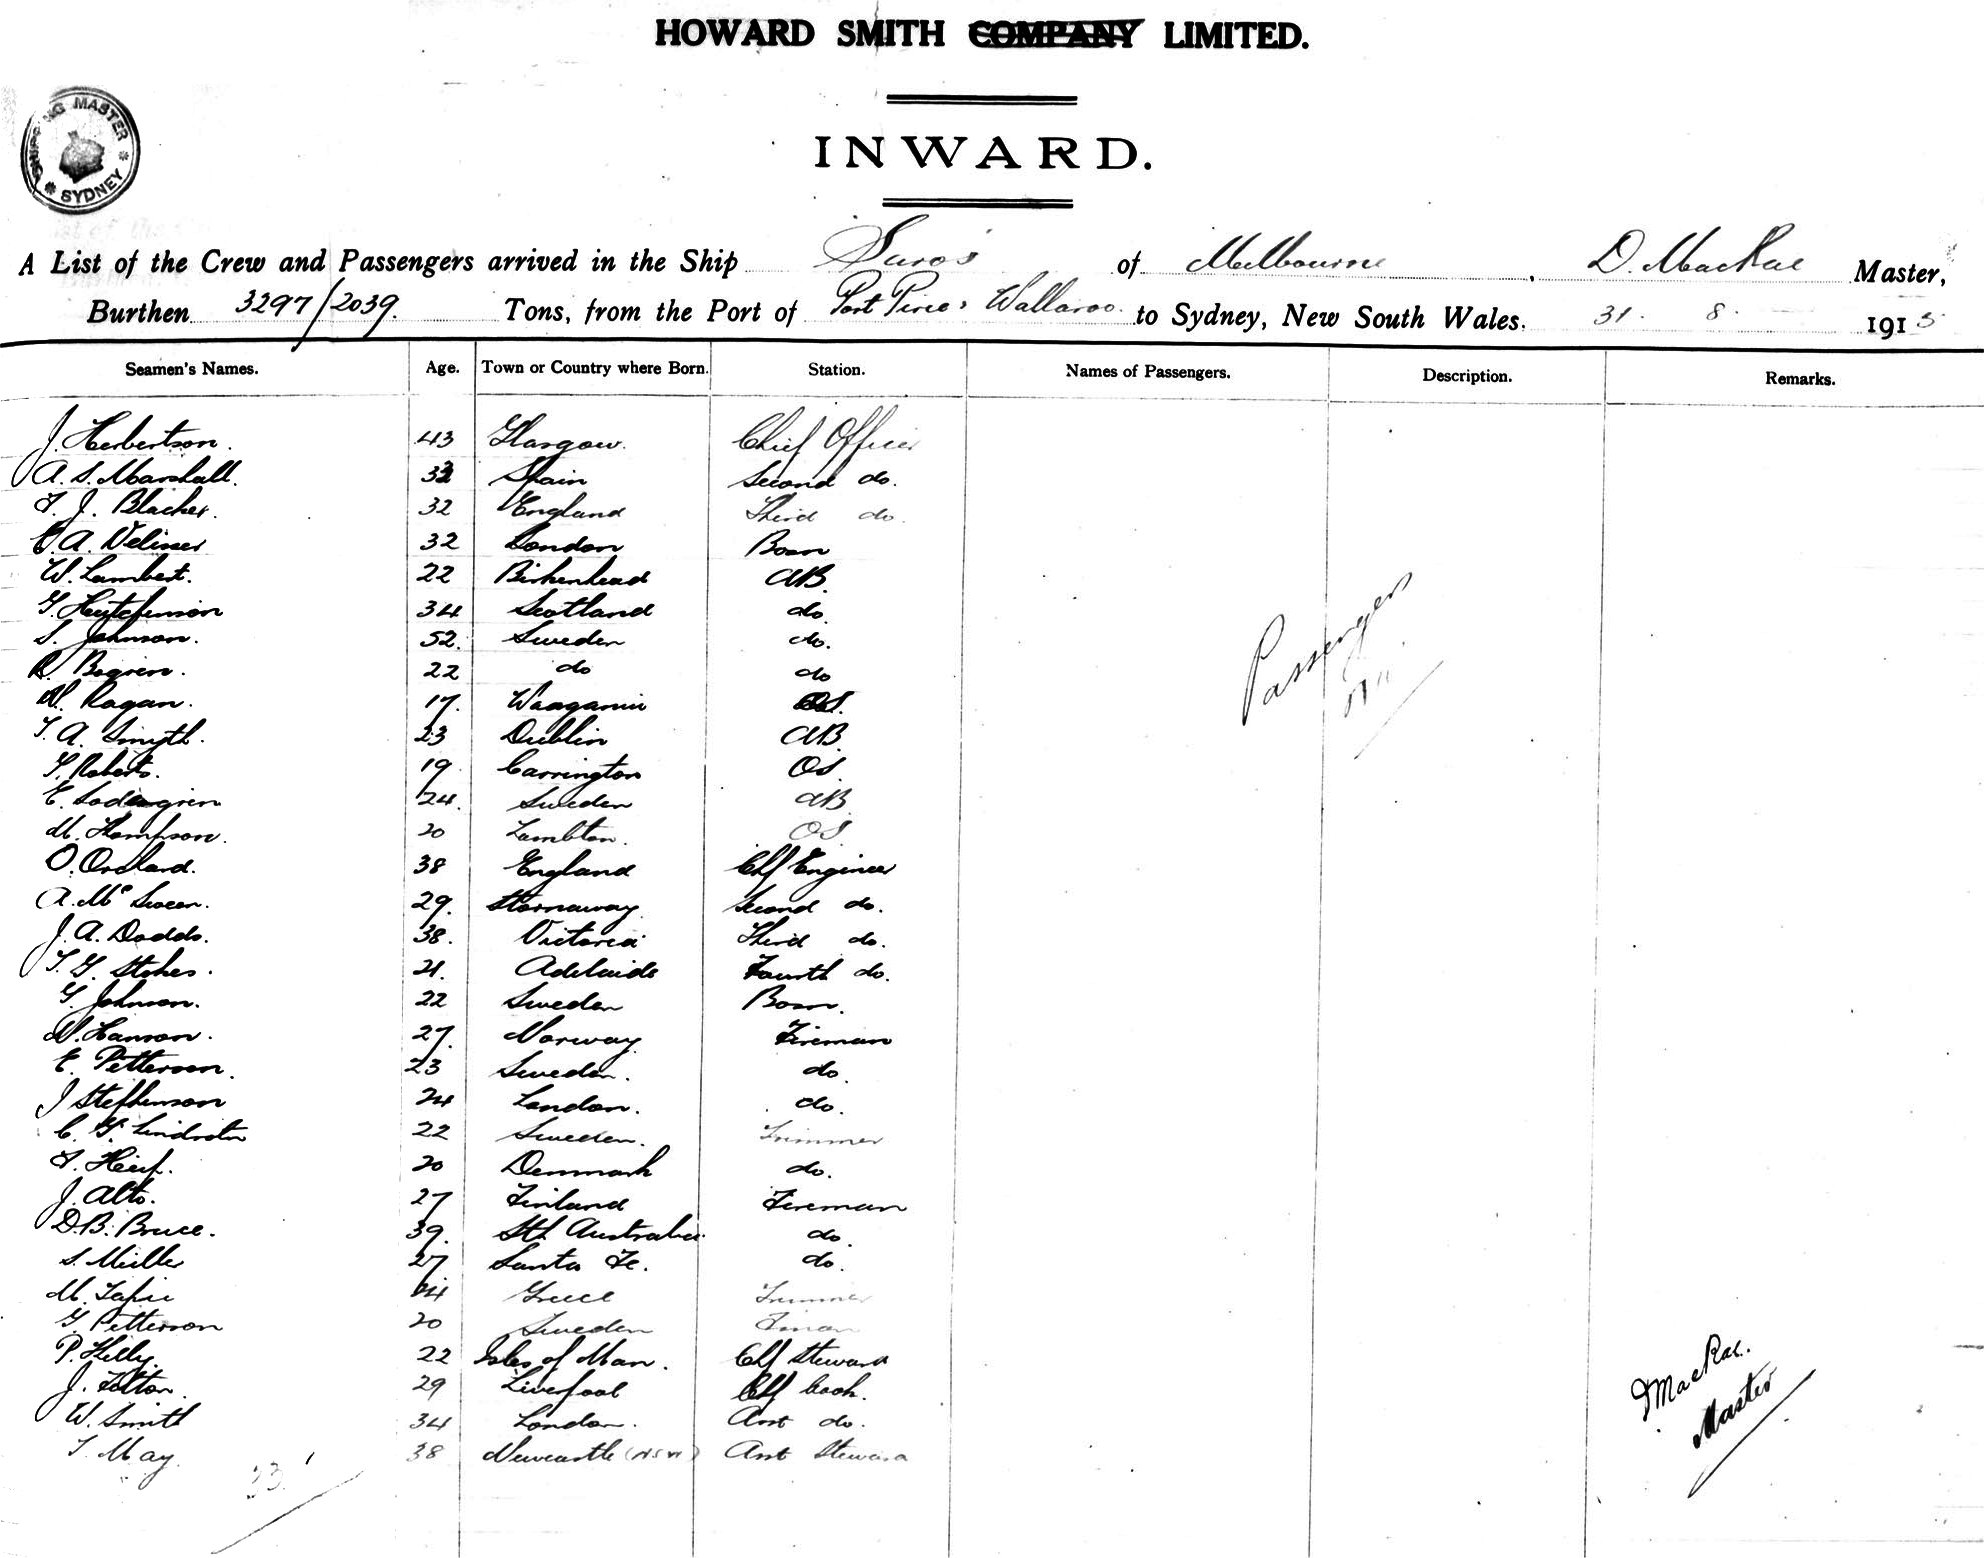 HOWARD SMITH COMPANY LIMITED.
SHIPPING MASTER SYDNEY
INWARD.
A List of the Crew and Passengers arrived in the Ship Suros of Melbourne, D. MacRae Master,
Burthen 3297/2039. Tons, from the Port of Port Pirie, Wallaroo to Sydney, New South Wales. 31. 8. 1915
Seamen's Names. Age. Town or Country where Born. Station. Names of Passengers. Description. Remarks.
J. Herbertson. 43 Glasgow. Chief Officer
A. S. Marshall. 33 Spain Second do.
32 England Third do.
32 London Bosn
W. Lambert. 22 Birkenhead AB.
G. Hutchinson 34 Scotland do.
S. Johnson. 52. Sweden do.
22 do do
Ragan. 17. OS.
T. A. Smyth. 23 Dublin AB.
Roberts. 19 Carrington OS.
E. Sodergren 24. Sweden AB
M. Thompson. 20 Lambton. OS.
O. Orchard. 38 England Chf Engineer
A. Mc Sween. 29. Stornaway Second do.
J. A. Dodds. 38. Victoria Third do.
T. G. Stokes. 21. Adelaide Fourth do.
G. Johnson. 22 Sweden Bosn.
Hanson. 27. Norway Fireman
E. Petterson. 23 Sweden. do.
J Stephenson 24 London. do.
C. G. 22 Sweden. Trimmer
20 Denmark do.
J. Alto. 27 Finland Fireman
D. B. Bruce. 39. Sth Australia do.
S. Miller 27 Santa Fe. do.
M. Greece Trimmer
G. Petterson 20 Sweden Fman
P. Kelly. 22 Isles of Man. Chf Steward
J. 29 Liverpool Chf Cook.
W. Smith 34 London. Asst do.
T. May. 38 Newcastle (NSW) Asst Steward
33
Passengers
Nil
D MacRae.
Master